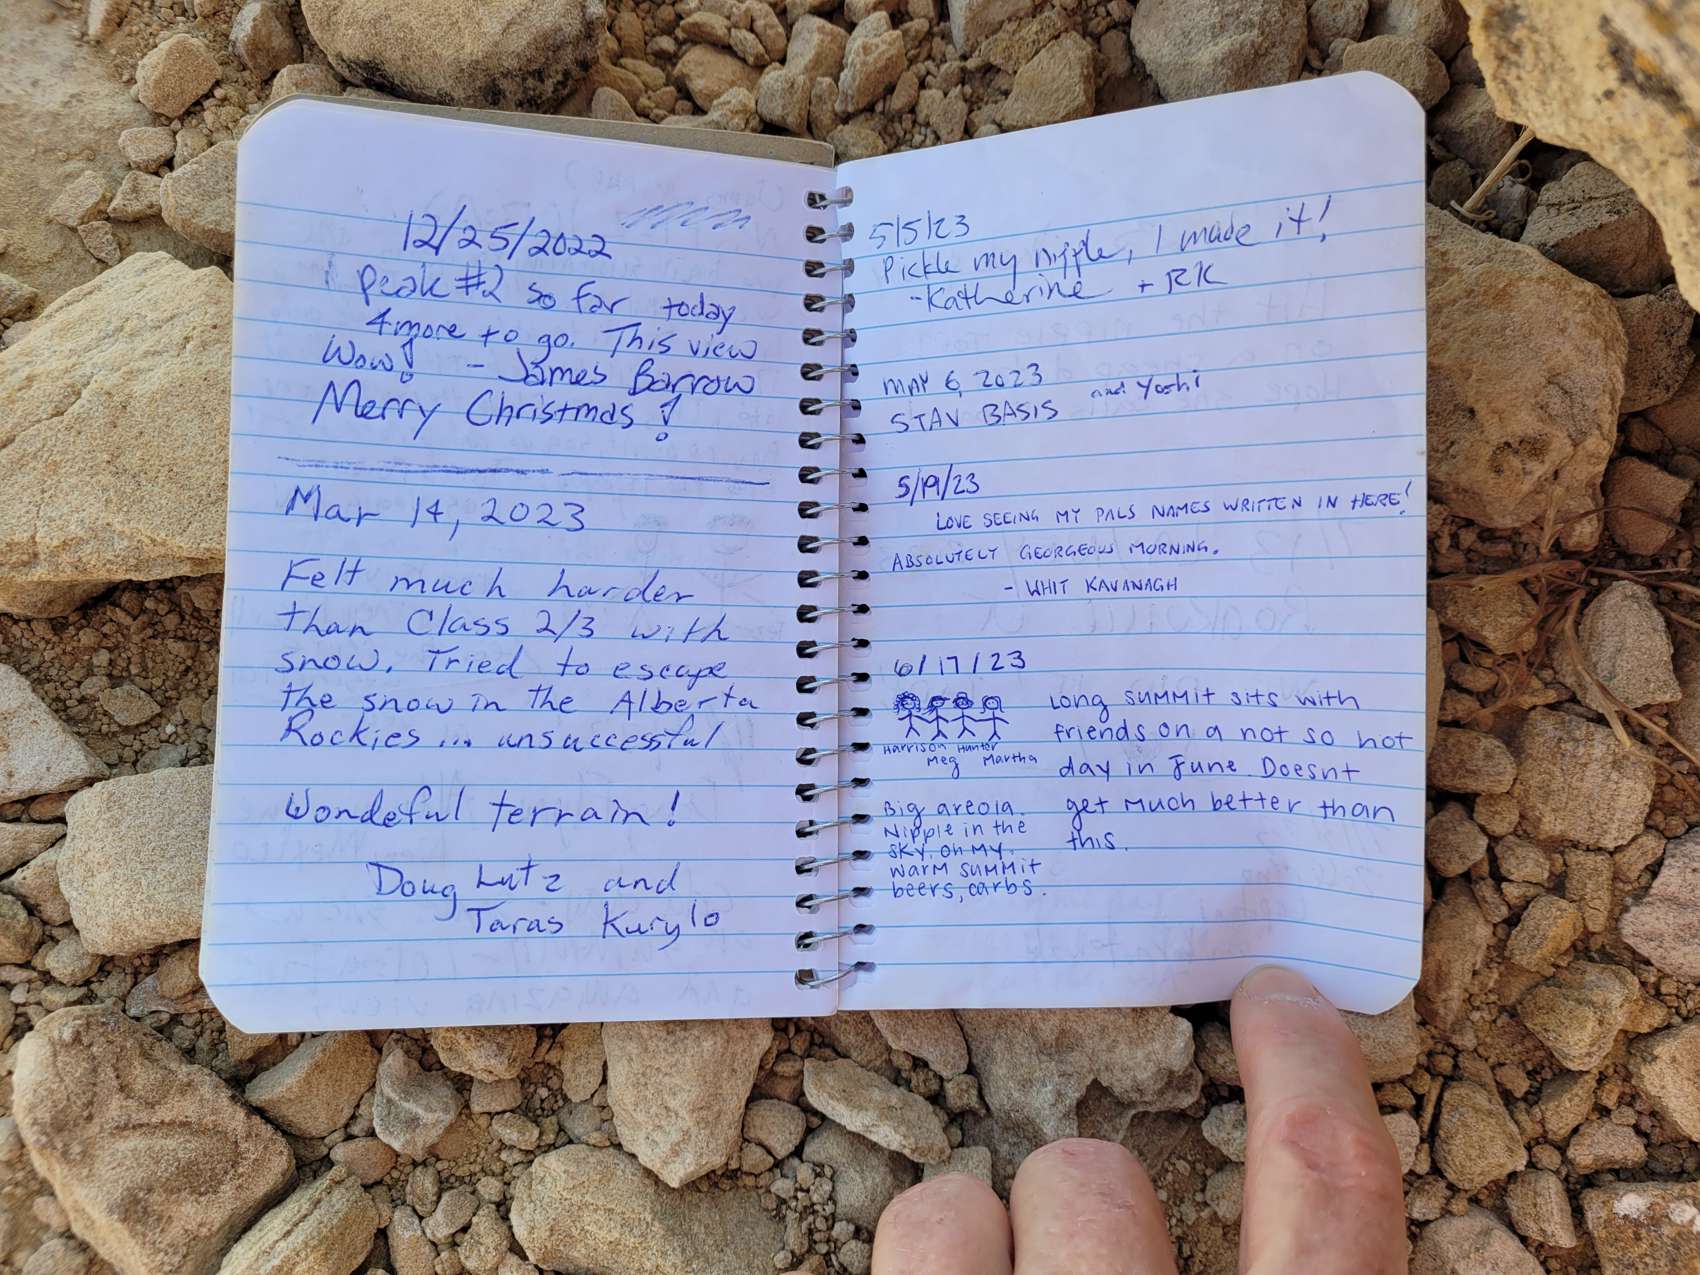 12/25/2022
Peak #2 so far today
4 more to go. This view
Wow! - James Barrow
Merry Christmas!
Mar 14, 2023
Felt much harder
than Class 2/3 with
snow. Tried to escape
the snow in the Alberta
Rockies... unsuccessful
Wondeful terrain!
Doug Lutz and
Taras Kurylo
5/5/23
Pickle my nipple, I made it!
-Katherine + RK
MAY 6, 2023
STAV BASIS and Yoshi
5/19/23
LOVE SEEING MY PALS NAMES WRITTEN IN HERE!
ABSOLUTELY GEORGEOUS MORNING.
- WHIT KAVANAGH
6/17/23
Harrison Hunter
Meg Martha
Long summit sits with
friends on a not so hot
day in June. Doesnt
get much better than
this.
Big areola.
Nipple in the
sky. oh my.
warm summit
beers, carbs.